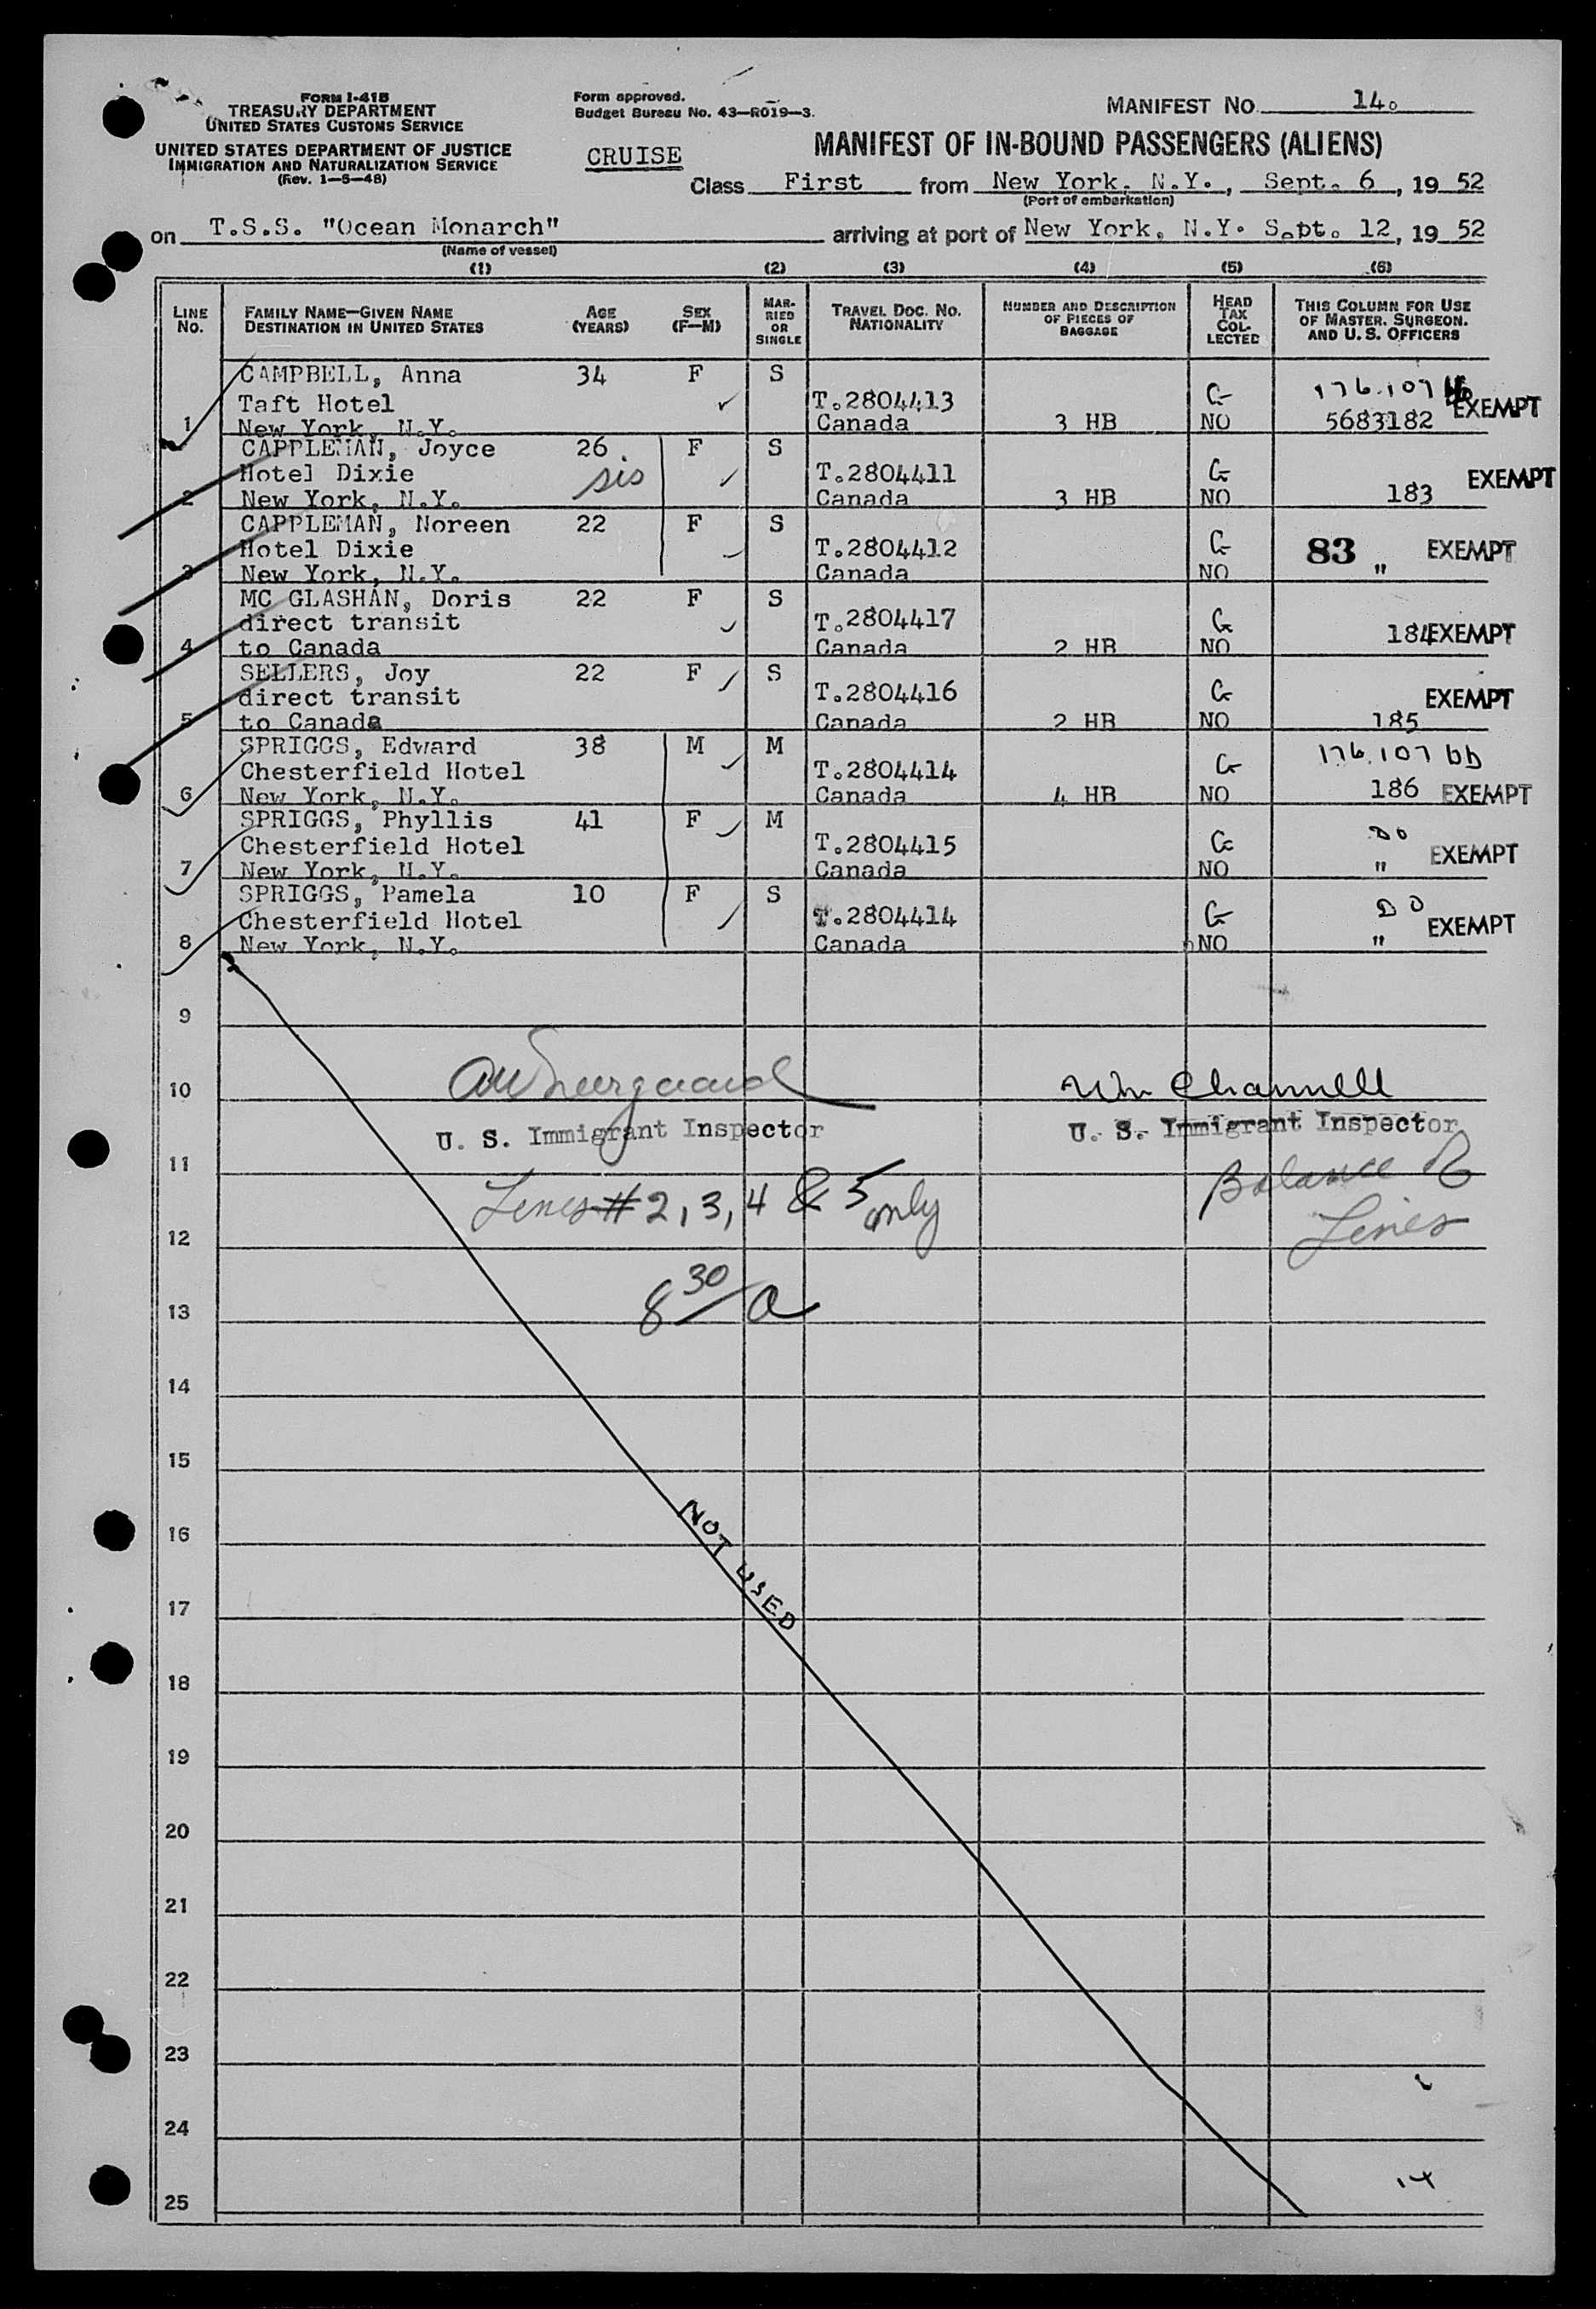 FORM I-415
TREASURY DEPARTMENT
UNITED STATES CUSTOMS SERVICE
UNITED STATES DEPARTMENT OF JUSTICE
IMMIGRATION AND NATURALIZATION SERVICE
(Rev. 1-5-48)
Form approved.
Budget Bureau No. 43-R019-3.
CRUISE
MANIFEST NO. 14.
MANIFEST OF IN-BOUND PASSENGERS (ALIENS)
Class First from New York, N.Y., Sept. 6, 1952
(Port of embarkation)
on T.S.S. "Ocean Monarch" arriving at port of New York, N.Y. Sept. 12, 1952
(Name of vessel)
(1) (2) (3) (4) (5) (6)
LINE No. FAMILY NAME—GIVEN NAME DESTINATION IN UNITED STATES AGE (YEARS) SEX (F—M) MARRIED OR SINGLE TRAVEL DOC. NO. NATIONALITY NUMBER AND DESCRIPTION OF PIECES OF BAGGAGE HEAD TAX COLLECTED THIS COLUMN FOR USE OF MASTER. SURGEON. AND U. S. OFFICERS
CAMPBELL, Anna 34 F S
Taft Hotel T.2804413 G 176.107
1 New York, N.Y. Canada 3 HB NO 5683182 EXEMPT
CAPPLEMAN, Joyce 26 F S
Hotel Dixie sis T.2804411 G EXEMPT
2 New York, N.Y. Canada 3 HB NO 183
CAPPLEMAN, Noreen 22 F S
Hotel Dixie T.2804412 G 83 EXEMPT
3 New York, N.Y. Canada NO "
MC GLASHAN, Doris 22 F S
direct transit T.2804417 G
4 to Canada Canada 2 HB NO 184 EXEMPT
SELLERS, Joy 22 F S
direct transit T.2804416 G EXEMPT
5 to Canada Canada 2 HB NO 185
SPRIGGS, Edward 38 M M
Chesterfield Hotel T.2804414 G 176.107 bb
6 New York, N.Y. Canada 4 HB NO 186 EXEMPT
SPRIGGS, Phyllis 41 F M
Chesterfield Hotel T.2804415 G Do
7 New York, N.Y. Canada NO " EXEMPT
SPRIGGS, Pamela 10 F S
Chesterfield Hotel T.2804414 G DO
8 New York, N.Y. Canada NO " EXEMPT
9
10 Wm Channell
U. S. Immigrant Inspector U. S. Immigrant Inspector
11 Balance of
Lines # 2, 3, 4 & 5 only Lines
12
8 30/a
13
14
15
16 NOT USED
17
18
19
20
21
22
23
24
14
25